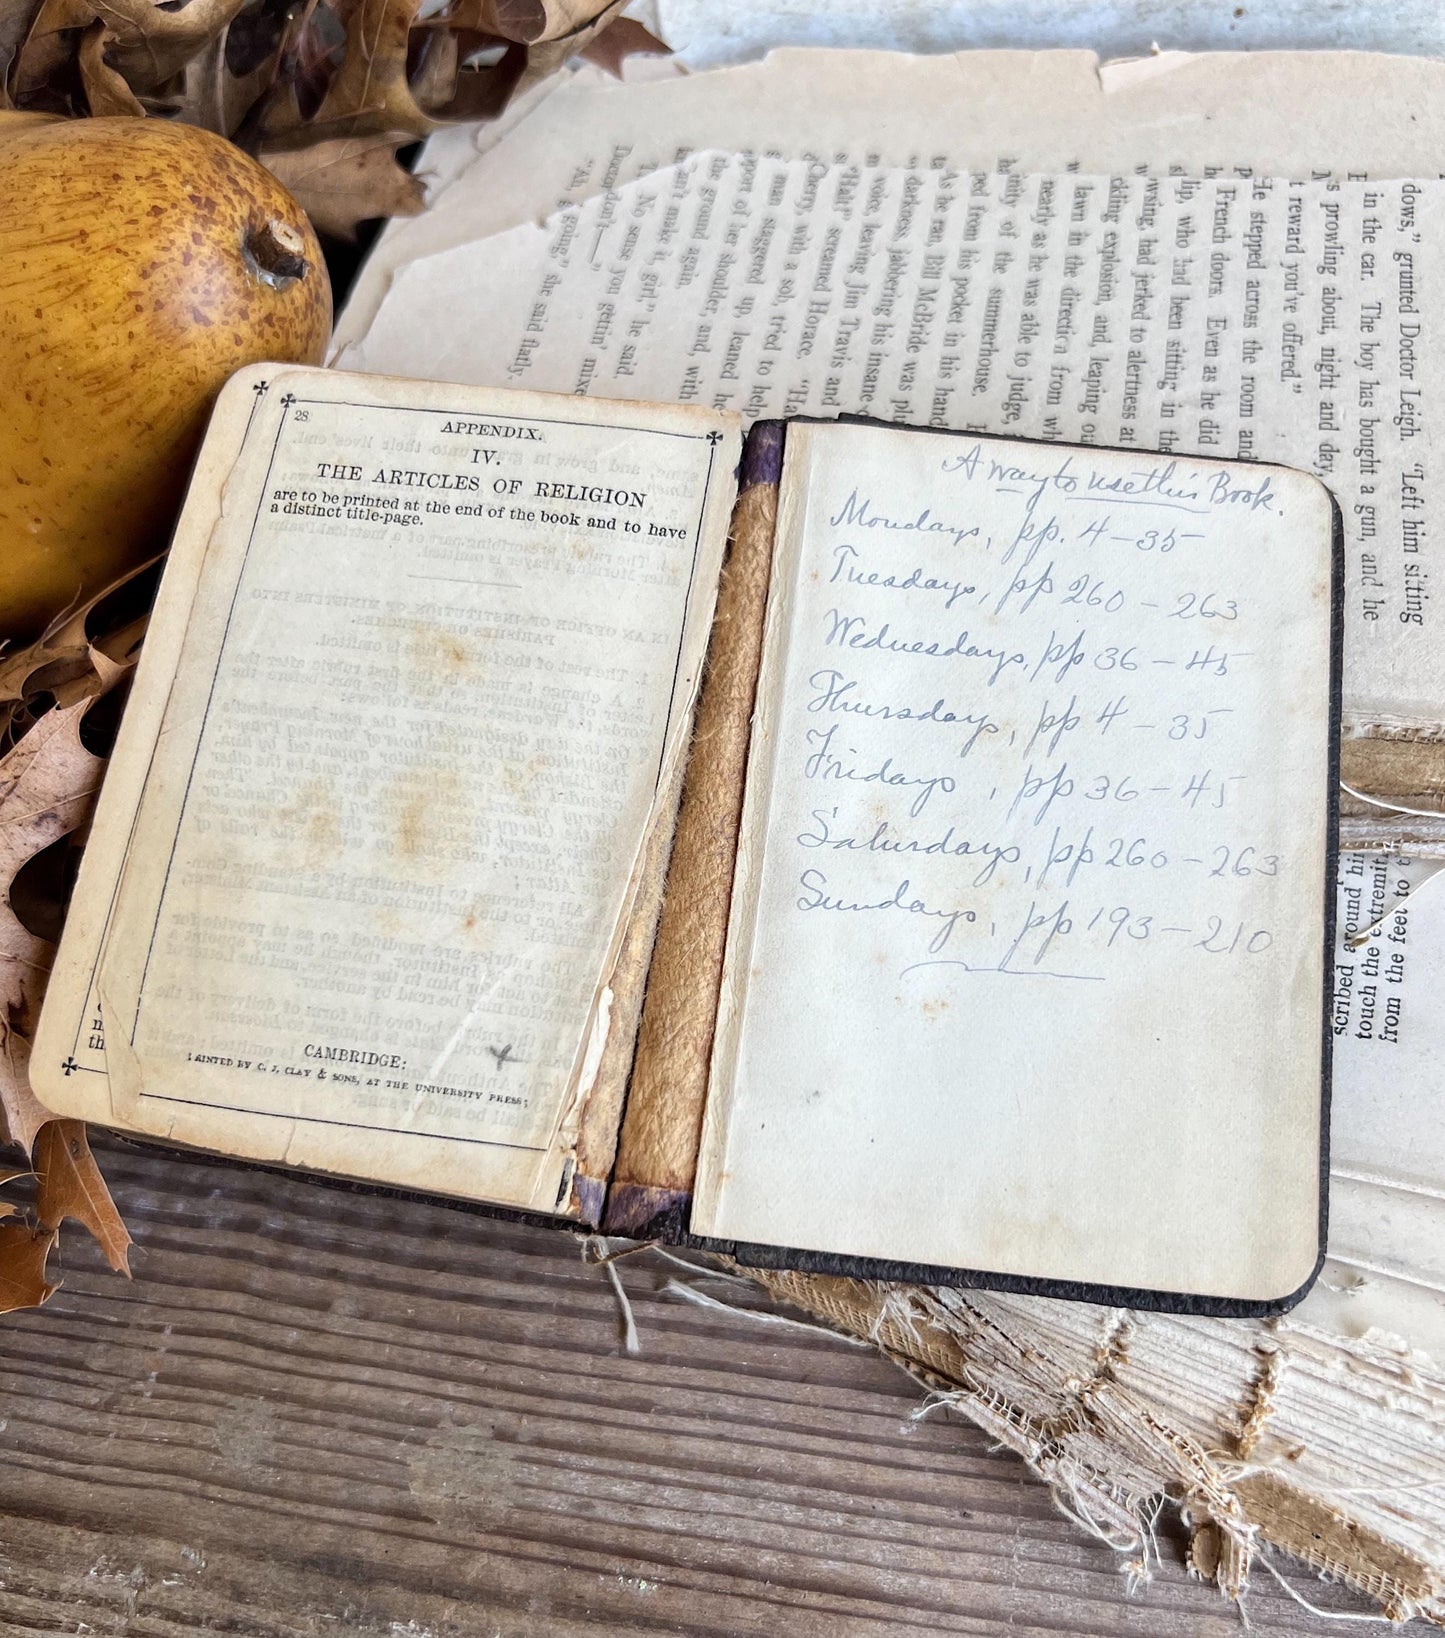 28
APPENDIX.
IV.
THE ARTICLES OF RELIGION
are to be printed at the end of the book and to have
a distinct title-page.
CAMBRIDGE:
PRINTED BY C. J. CLAY & SONS, AT THE UNIVERSITY PRESS;
A way to use this Book.
Mondays, pp. 4-35
Tuesdays, pp 260 - 263
Wednesdays, pp 36 - 45
Thursdays, pp 4 - 35
Fridays, pp 36 - 45
Saturdays, pp 260 - 263
Sundays, pp 193 - 210
dows," grunted Doctor Leigh. "Left him sitting
in the car. The boy has bought a gun, and he
s prowling about, night and day
reward you've offered."
He stepped across the room and
French doors. Even as he did
lip, who had been sitting in the
had jerked to alertness at
ckling explosion, and, leaping
lawn in the direction from
nearly as he was able to judge,
inity of the summerhouse.
ped from his pocket in his hand
As he ran, Bill McBride was
darkness, jabbering his insane
voice, leaving Jim Travis and
"Halt!" screamed Horace.
Cherry, with a sob, tried to help
man staggered up, leaned
pport of her shoulder, and, with
the ground again.
can't make it, girl," he said.
No sense you gettin'
Doctor don't—"
going," she said flatly.
scribed around
touch the
from the feet to